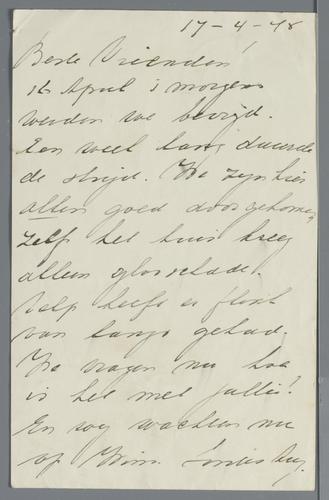 17-4-45
Beste Vrienden!
16 April 's morgens
werden we bevrijd.
Een week lang duurde
de strijd. We zijn hier
allen goed doorgekomen,
zelf het huis kreeg
alleen glasschade.
Velp heeft er flink
van langs gehad.
We vragen nu hoe
is het met jullie?
En zoo wachten we nu
op Wim.